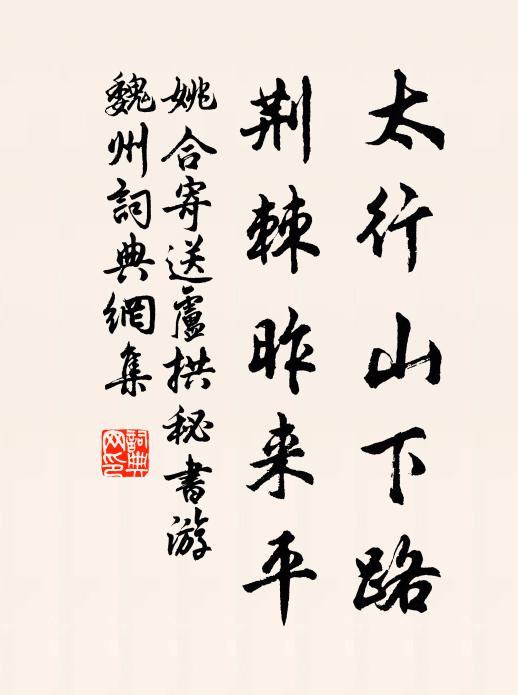 太行山下路
荆棘昨来平
姚合寄送盧拱秘書游
魏州詞典網集
詞典网印